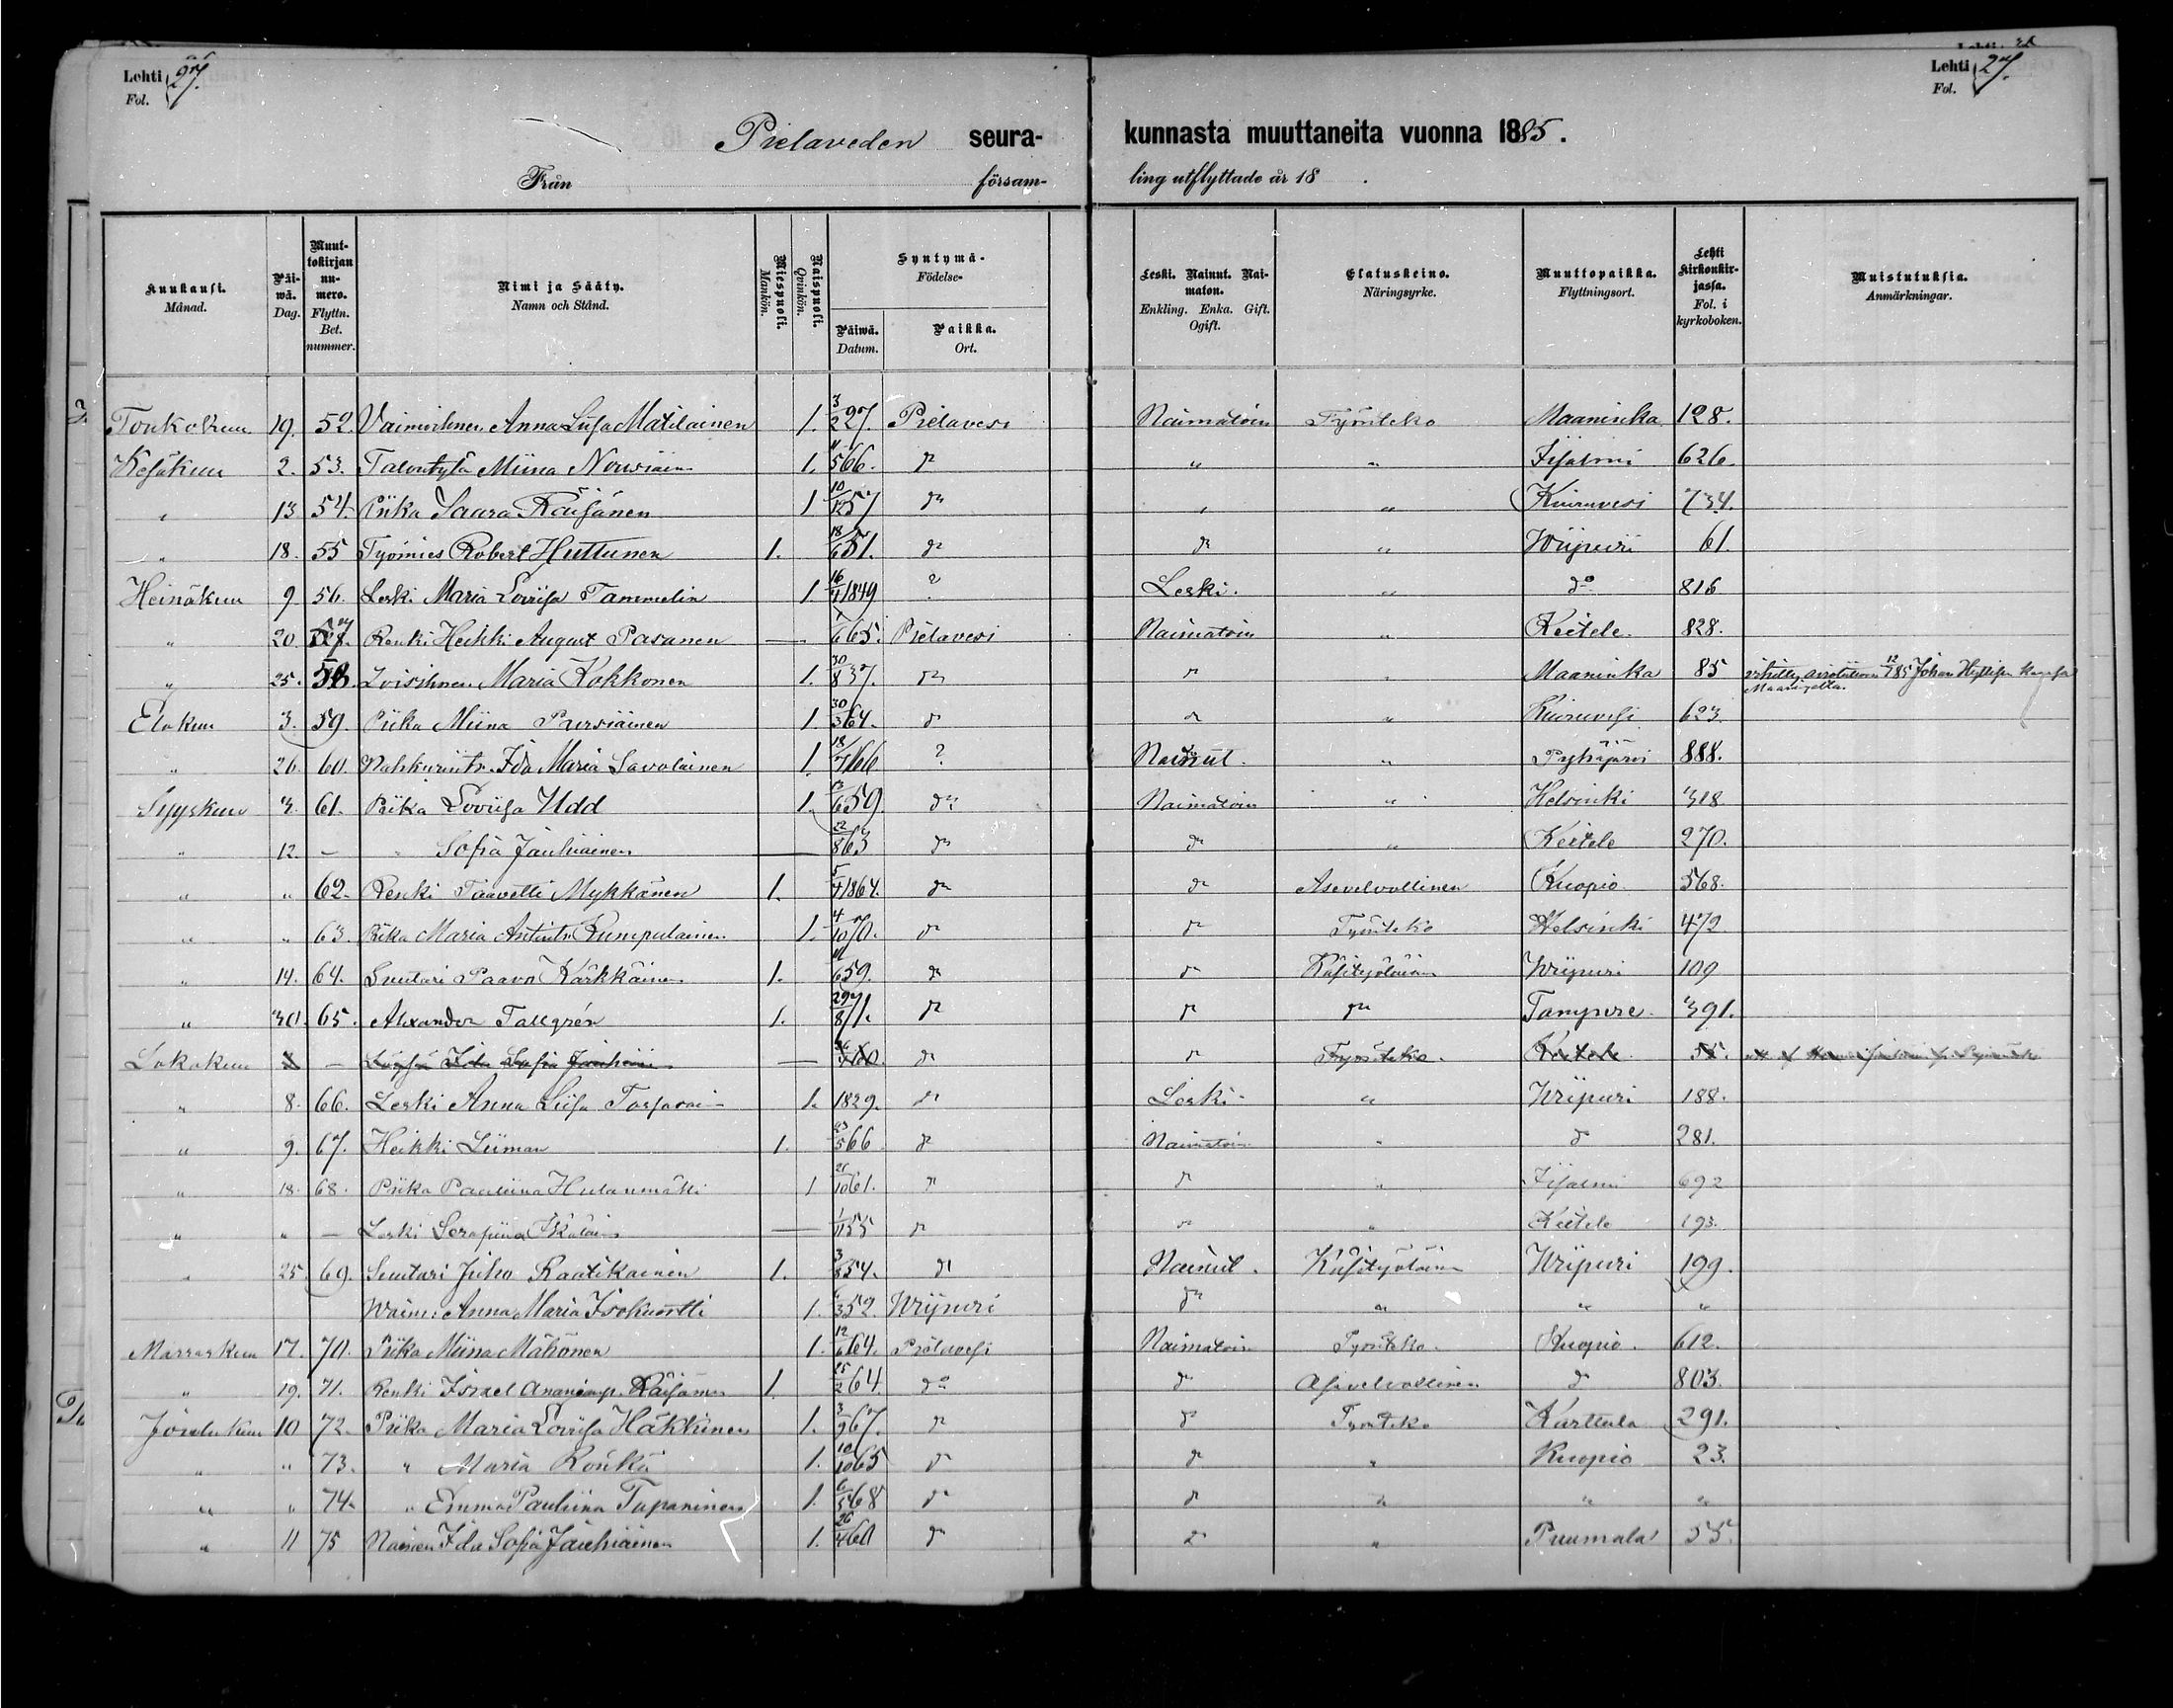 Lehti 27.
Fol.
Lehti 27.
Fol.
Pielaveden seura- kunnasta muuttaneita vuonna 1885.
Från församling utflyttade år 18 .
Kuukausi. Månad.
Päiwä. Dag.
Muuttokirjan numero. Flyttn. Bet. nummer.
Nimi ja Sääty. Namn och Stånd.
Miespuoli. Mankön.
Naispuoli. Qvinkön.
Syntymä- Födelse-
Päiwä. Datum.
Paikka. Ort.
Leski. Nainut. Naimaton. Enkling. Enka. Gift. Ogift.
Elatuskeino. Näringsyrke.
Muuttopaikka. Flyttningsort.
Lehti kirkonkirjassa. Fol. i kyrkoboken.
Muistutuksia. Anmärkningar.
Toukokuu 19. 52. Vaimoihmen Anna Liisa Matilainen 1. 3/2 27. Pielavesi Naimatoin Työnteko Maaninka 128.
Kesäkuu 2. 53. Talontytä Miina Nousiain 1. 11/5 66. do " " Iisalmi 626.
" 13 54. Piika Saara Räisänen 1 10/12 57 do " " Kiuruvesi 734.
" 18. 55 Työmies Robert Huttunen 1. 18/6 51. do do " Wiipuri 61.
Heinäkuu 9. 56. Leski Maria Loviisa Tammelin 1 16/4 1849 ? Leski. " do 816
" 20. 57. Renki Heikki August Pasanen — 1/6 65. Pielavesi Naimatoin " Keitele. 828.
" 25. 58. Loisihmen Maria Kokkonen 1. 30/8 37. do do " Maaninka 85
Elokuu 3. 59. Piika Miina Pursiainen 1. 30/3 64. do do " Kiuruvesi 623.
" 26. 60. Nahkurintr. Ida Maria Savolainen 1. 18/7 66 ? Nainut. " Pyhäjärvi 888.
Syyskuu 3. 61. Piika Loviisa Udd 1. 12/6 59. do Naimatoin " Helsinki 318
" 12. — " Sofia Jauhiainen — 22/8 63 do do " Keitele 270.
" " 62. Renki Taavetti Mykkänen 1. 5/4 1864. do do Asevelvollinen Kuopio 568.
" " 63. Piika Maria Antintr. Rumpulainen 1. 4/10 70. do do Työnteko Helsinki 472
" 14. 64. Suutari Paavo Kärkkäinen 1. 11/6 59. do do Käsityöläinen Wiipuri 109
" 30. 65. Alexander Tallgrén 1. 29/8 71. do do do Tampere. 391.
Lokakuu — Ida Sofia Jauhiai — do do Työnteko. Keitele 55.
" 8. 66. Leski Anna Liisa 1. 1829. do Leski " Wiipuri 188.
" 9. 67. Heikki Liiman 1. 23/5 66 do Naimatoin " do 281.
" 18. 68. Piika Pauliina Hulanmäki 1 21/10 61. do do " Iisalmi 692
" " — Leski Serafiina — 1/11 55 do do " Keitele 193.
" 25. 69. Suutari Juho Raatikainen 1. 3/8 54. do Nainut. Käsityöläinen Wiipuri 199.
Waim. Anna Maria Isokuortti 1. 6/3 52. Wiipuri do " " "
Marraskuu 17. 70. Piika Miina Mähönen 1. 12/6 64. Pielavesi Naimatoin Työnteko. Kuopio. 612.
" 19. 71. Renki Israel Ananianp. Räisänen 1. 25/2 64 do do Asevelvollinen do 803.
Joulukuu 10 72. Piika Maria Loviisa Häkkinen 1. 3/9 67. do do Työnteko Karttula 291.
" " 73. " Maria Rönkä 1. 10/10 65 do do " Kuopio 23.
" " 74. " Emma Pauliina Tapaninen 1. 6/5 68 do do " " "
" 11 75 Nainen Ida Sofia Jauhiainen 1. 26/4 60 do do " Puumala 55.